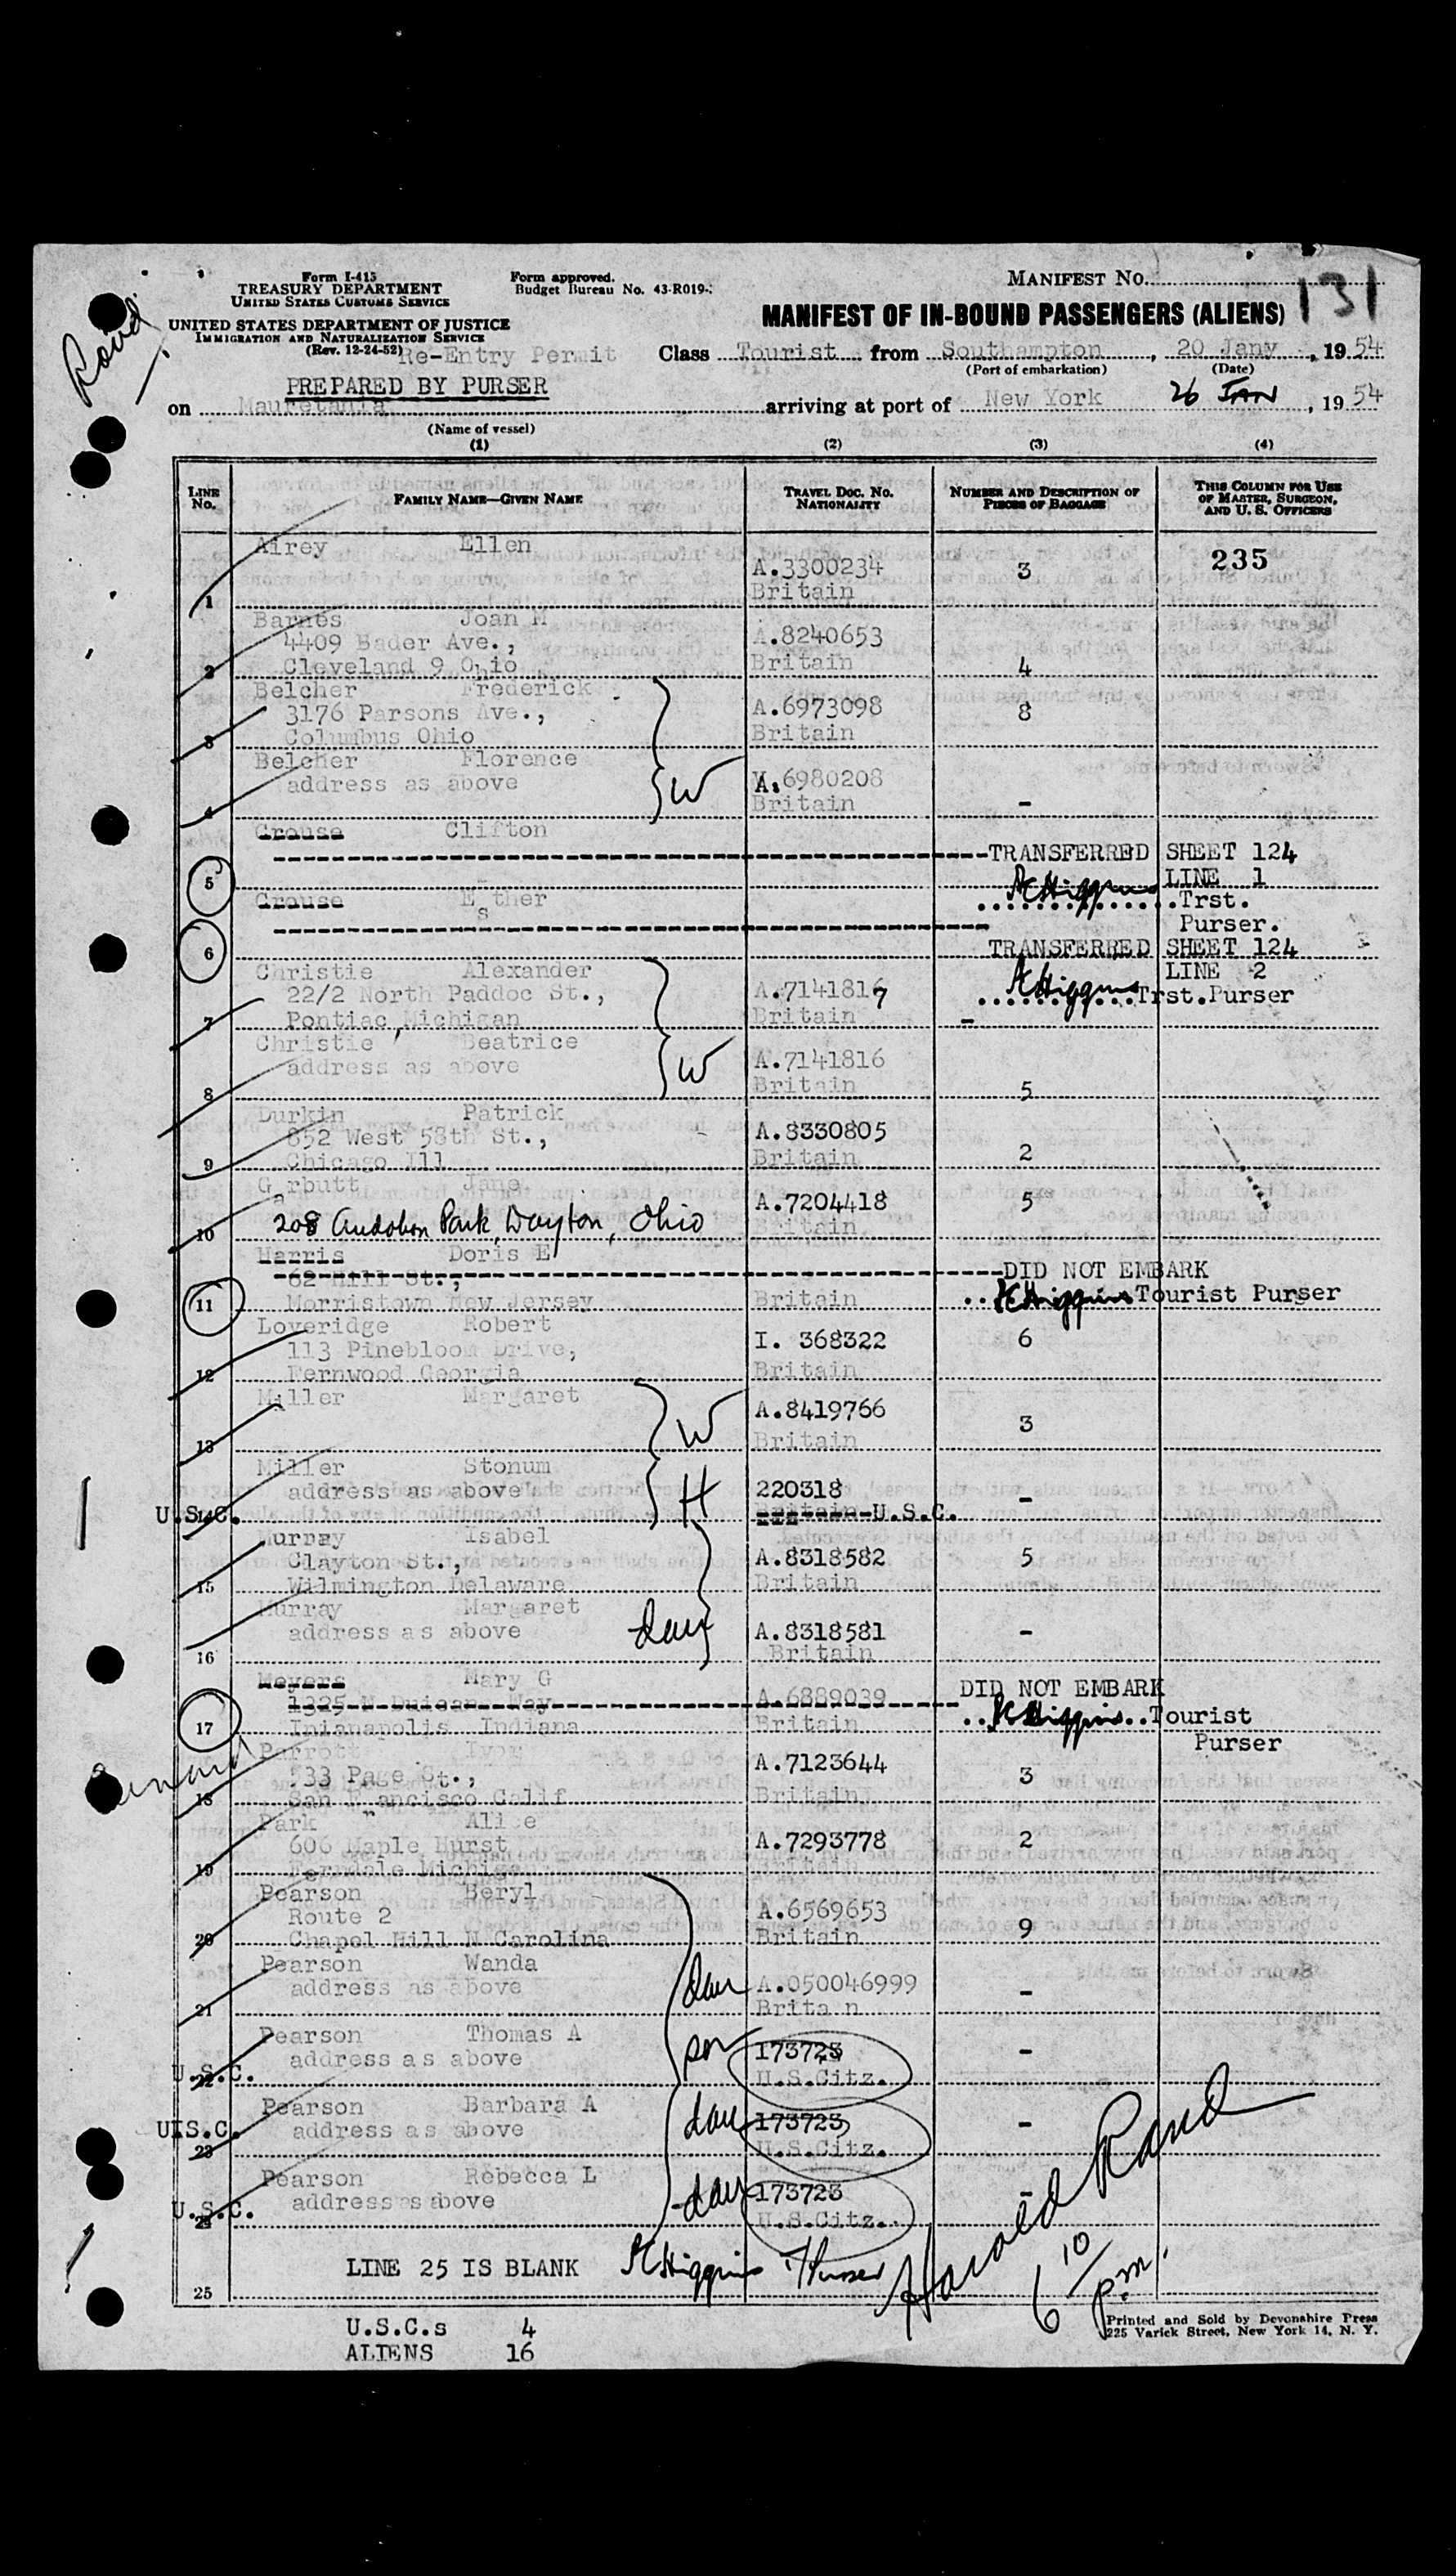 Form I-415
TREASURY DEPARTMENT
UNITED STATES CUSTOMS SERVICE
Form approved.
Budget Bureau No. 43-R019-
MANIFEST NO.
131
UNITED STATES DEPARTMENT OF JUSTICE
IMMIGRATION AND NATURALIZATION SERVICE
(Rev. 12-24-52)
MANIFEST OF IN-BOUND PASSENGERS (ALIENS)
Re-Entry Permit Class Tourist from Southampton, 20 Jany, 1954
(Port of embarkation) (Date)
PREPARED BY PURSER
on Mauretania arriving at port of New York 26 JAN, 1954
(Name of vessel)
(1) (2) (3) (4)
LINE NO. FAMILY NAME—GIVEN NAME TRAVEL DOC. NO. NATIONALITY NUMBER AND DESCRIPTION OF PIECES OF BAGGAGE THIS COLUMN FOR USE OF MASTER, SURGEON, AND U. S. OFFICERS
Airey Ellen 235
A.3300234 3
1 Britain
Barnes Joan M
4409 Bader Ave., A.8240653
2 Cleveland 9 Ohio Britain 4
Belcher Frederick
3176 Parsons Ave., A.6973098 8
3 Columbus Ohio Britain
Belcher Florence
address as above W A.6980208
4 Britain -
Crouse Clifton
TRANSFERRED SHEET 124
5 LINE 1
Crouse Esther Higgins Trst.
Purser.
6 TRANSFERRED SHEET 124
Christie Alexander LINE 2
22/2 North Paddoc St., A.7141817 Higgins Trst.Purser
7 Pontiac, Michigan Britain -
Christie Beatrice
address as above W A.7141816
8 Britain 5
Durkin Patrick
852 West 58th St., A.8330805
9 Chicago Ill Britain 2
Garbutt Jane
A.7204418 5
10 208 Audobon Park, Dayton, Ohio Britain
Harris Doris E
62 Hill St., DID NOT EMBARK
11 Morristown New Jersey Britain Higgins Tourist Purser
Loveridge Robert
113 Pinebloom Drive, I. 368322 6
12 Fernwood Georgia Britain
Miller Margaret
W A.8419766
13 Britain 3
Miller Stonum
address as above H 220318 -
U.S.C. 14 Britain U.S.C.
Murray Isabel
Clayton St., A.8318582 5
15 Wilmington Delaware Britain
Murray Margaret
address as above dau A.8318581 -
16 Britain
Meyers Mary G
1325 N Duigan Way A.6889039 DID NOT EMBARK
17 Inianapolis Indiana Britain Higgins Tourist
Purser
Parrott Ivor
33 Page St., A.7123644 3
18 San Francisco Calif Britain
Park Alice
606 Maple Hurst A.7293778 2
19 Ferndale Michigan Britain
Pearson Beryl
Route 2 A.6569653
20 Chapel Hill N Carolina Britain 9
Pearson Wanda
address as above dau A.050046999 -
21 Britain
Pearson Thomas A
address as above son 173723 -
U.S.C. 22 U.S.Citz.
Pearson Barbara A
U.S.C. address as above dau 173723 -
23 U.S.Citz.
Pearson Rebecca L
address as above dau 173723 -
U.S.C. 24 U.S.Citz.
LINE 25 IS BLANK Higgins T/Purser
25
Harold Rand
6 10/pm.
U.S.C.s 4
ALIENS 16
Printed and Sold by Devonshire Press
225 Varick Street, New York 14, N. Y.